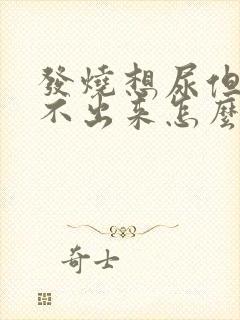 發燒想尿但
不出来怎麼
奇士